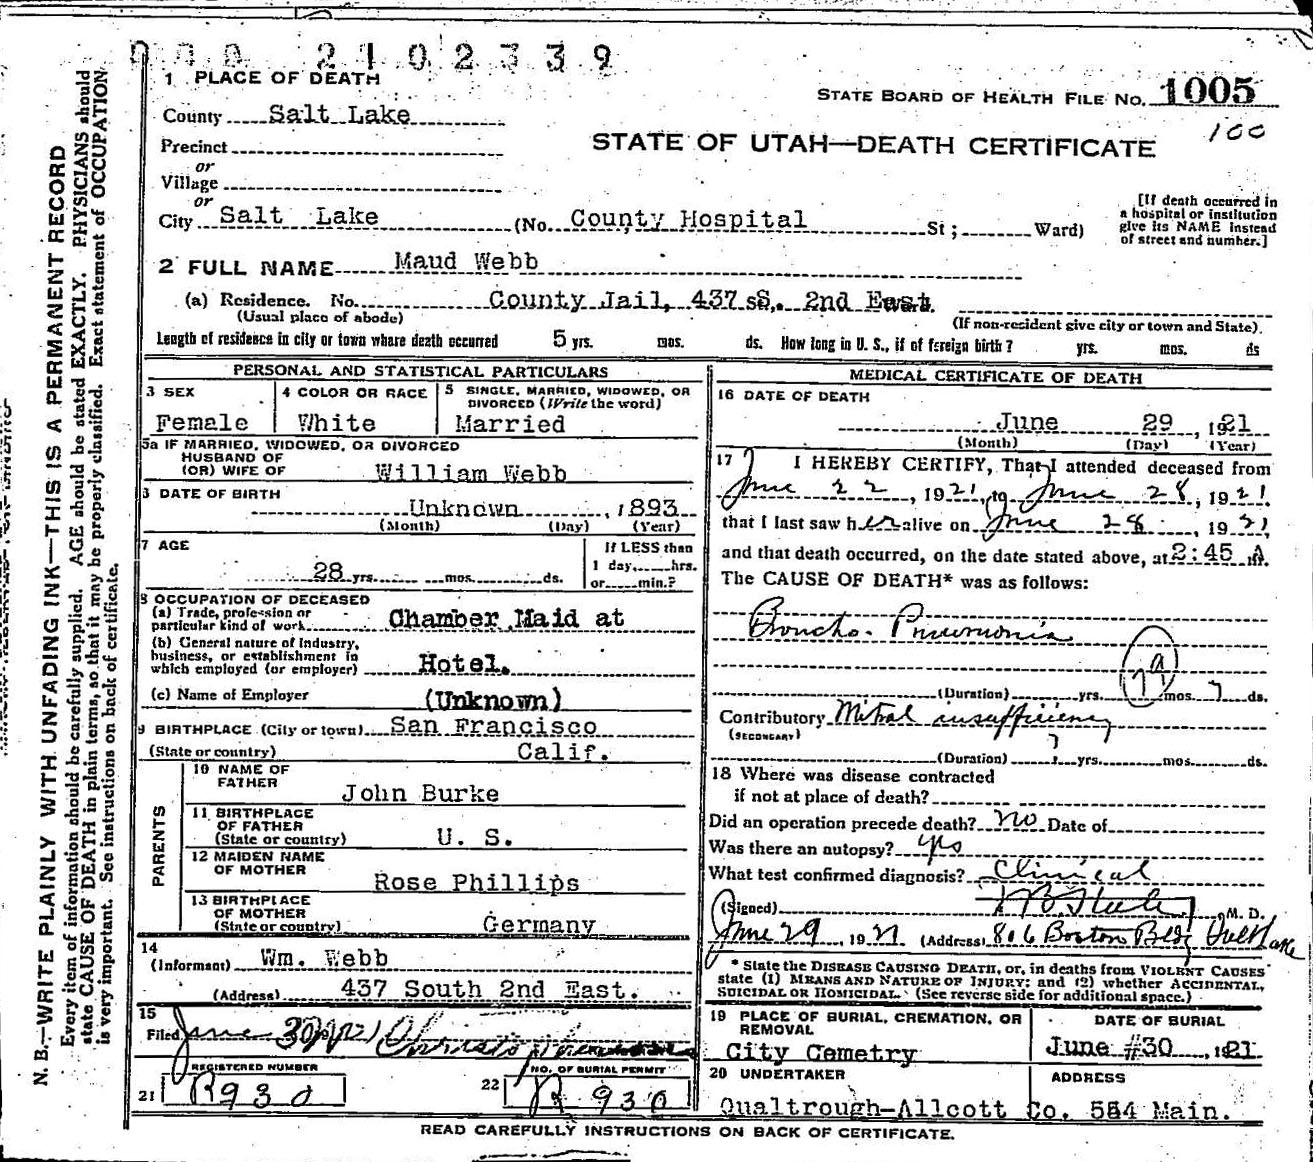 000 2102339
1 PLACE OF DEATH
STATE BOARD OF HEALTH FILE NO. 1005
County Salt Lake
100
STATE OF UTAH—DEATH CERTIFICATE
Precinct
or
Village
or
City Salt Lake (No. County Hospital St; Ward)
[If death occurred in
a hospital or institution
give its NAME instead
of street and number.]
2 FULL NAME Maud Webb
(a) Residence. No. County Jail, 437 S. 2nd East.
(Usual place of abode)
(If non-resident give city or town and State).
Length of residence in city or town where death occurred 5 yrs. mos. ds. How long in U. S., if of foreign birth? yrs. mos. ds
PERSONAL AND STATISTICAL PARTICULARS
3 SEX
Female
4 COLOR OR RACE
White
5 SINGLE, MARRIED, WIDOWED, OR
DIVORCED (Write the word)
Married
5a IF MARRIED, WIDOWED, OR DIVORCED
HUSBAND OF
(OR) WIFE OF William Webb
6 DATE OF BIRTH
Unknown, 1893
(Month) (Day) (Year)
7 AGE
28 yrs. mos. ds.
If LESS than
1 day, hrs.
or min.?
8 OCCUPATION OF DECEASED
(a) Trade, profession or
particular kind of work Chamber Maid at
(b) General nature of Industry,
business, or establishment in
which employed (or employer) Hotel.
(c) Name of Employer (Unknown)
9 BIRTHPLACE (City or town) San Francisco
(State or country) Calif.
PARENTS
10 NAME OF
FATHER
John Burke
11 BIRTHPLACE
OF FATHER
(State or country) U. S.
12 MAIDEN NAME
OF MOTHER
Rose Phillips
13 BIRTHPLACE
OF MOTHER
(State or country) Germany
14
(Informant) Wm. Webb
(Address) 437 South 2nd East.
15
Filed June 30
REGISTERED NUMBER
21 R930
NO. OF BURIAL PERMIT
22 R 930
MEDICAL CERTIFICATE OF DEATH
16 DATE OF DEATH
June 29, 1921
(Month) (Day) (Year)
17 I HEREBY CERTIFY, That I attended deceased from
June 22, 1921, to June 28, 1921
that I last saw her alive on June 28, 1921,
and that death occurred, on the date stated above, at 2:45 A m.
The CAUSE OF DEATH* was as follows:
Broncho-Pneumonia
(Duration) yrs. mos. 7 ds.
Contributory Mitral insufficiency
(SECONDARY)
(Duration) ? yrs. mos. ds.
18 Where was disease contracted
if not at place of death?
Did an operation precede death? no Date of
Was there an autopsy? yes
What test confirmed diagnosis? Clinical
(Signed) M. D.
June 29, 1921 (Address) 806 Boston Bldg Salt Lake
* State the DISEASE CAUSING DEATH, or, in deaths from VIOLENT CAUSES
state (1) MEANS AND NATURE OF INJURY; and (2) whether ACCIDENTAL,
SUICIDAL OR HOMICIDAL. (See reverse side for additional space.)
19 PLACE OF BURIAL, CREMATION, OR
REMOVAL
City Cemetry
DATE OF BURIAL
June #30, 1921
20 UNDERTAKER
Qualtrough-Allcott Co.
ADDRESS
554 Main.
READ CAREFULLY INSTRUCTIONS ON BACK OF CERTIFICATE.
N. B.—WRITE PLAINLY WITH UNFADING INK—THIS IS A PERMANENT RECORD
Every item of information should be carefully supplied. AGE should be stated EXACTLY. PHYSICIANS should
state CAUSE OF DEATH in plain terms, so that it may be properly classified. Exact statement of OCCUPATION
is very important. See instructions on back of certificate.